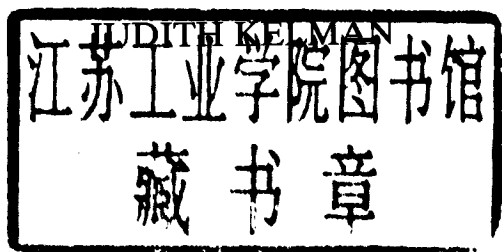 JUDITH KELMAN
江苏工业学院图书馆
藏书章